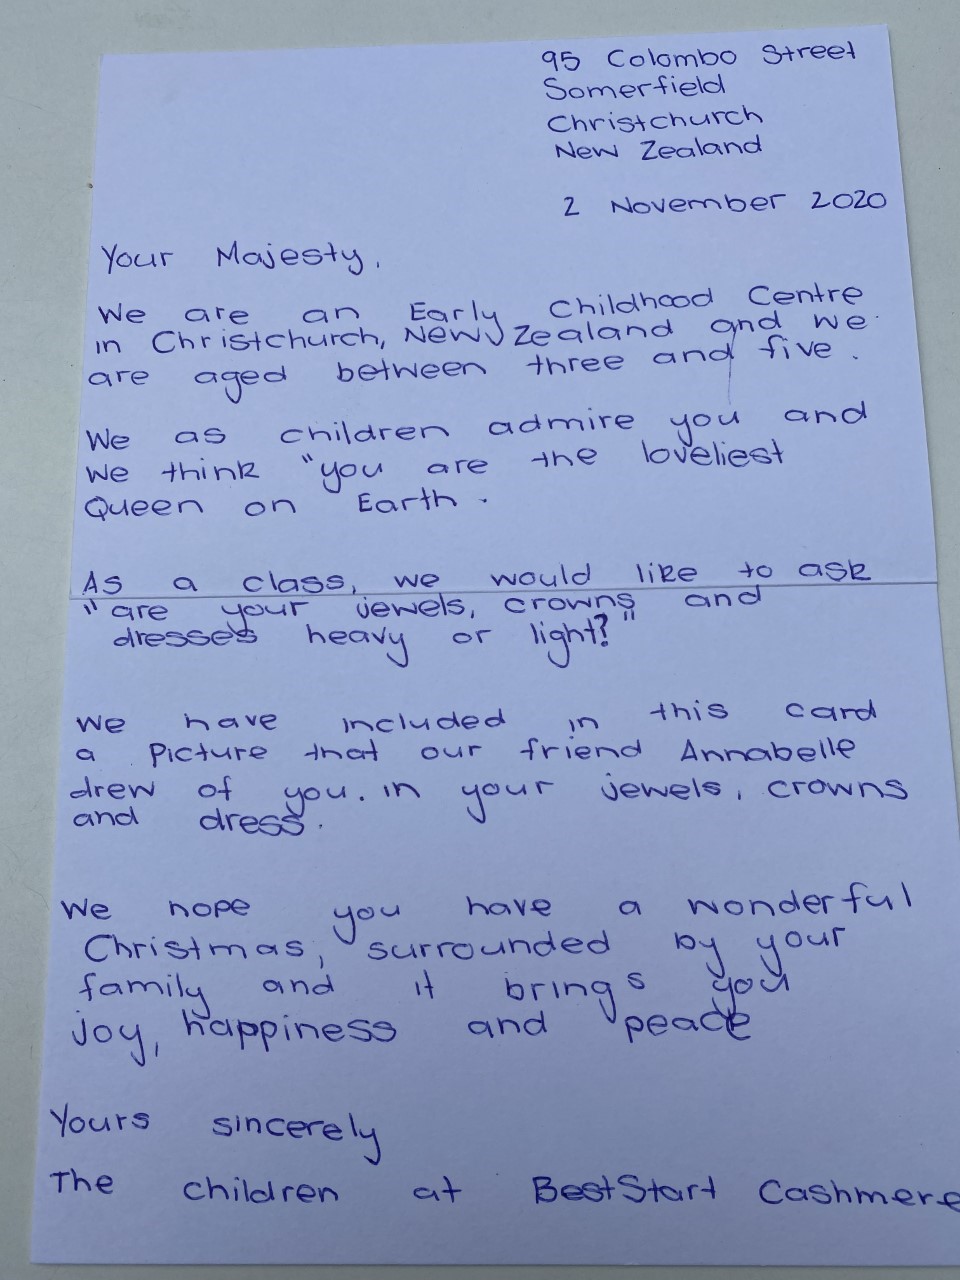 95 Colombo Street
Somerfield
Christchurch
New Zealand
2 November 2020
Your Majesty,
We are an Early Childhood Centre
in Christchurch, New Zealand and we
are aged between three and five.
We as children admire you and
we think "you are the loveliest
Queen on Earth.
As a class, we would like to ask
"are your jewels, crowns and
dresses heavy or light?"
We have included in this card
a picture that our friend Annabelle
drew of you. in your jewels, crowns
and dress.
We hope you have a wonderful
Christmas, surrounded by your
family and it brings you
joy, happiness and peace
Yours sincerely
The children at BestStart Cashmere